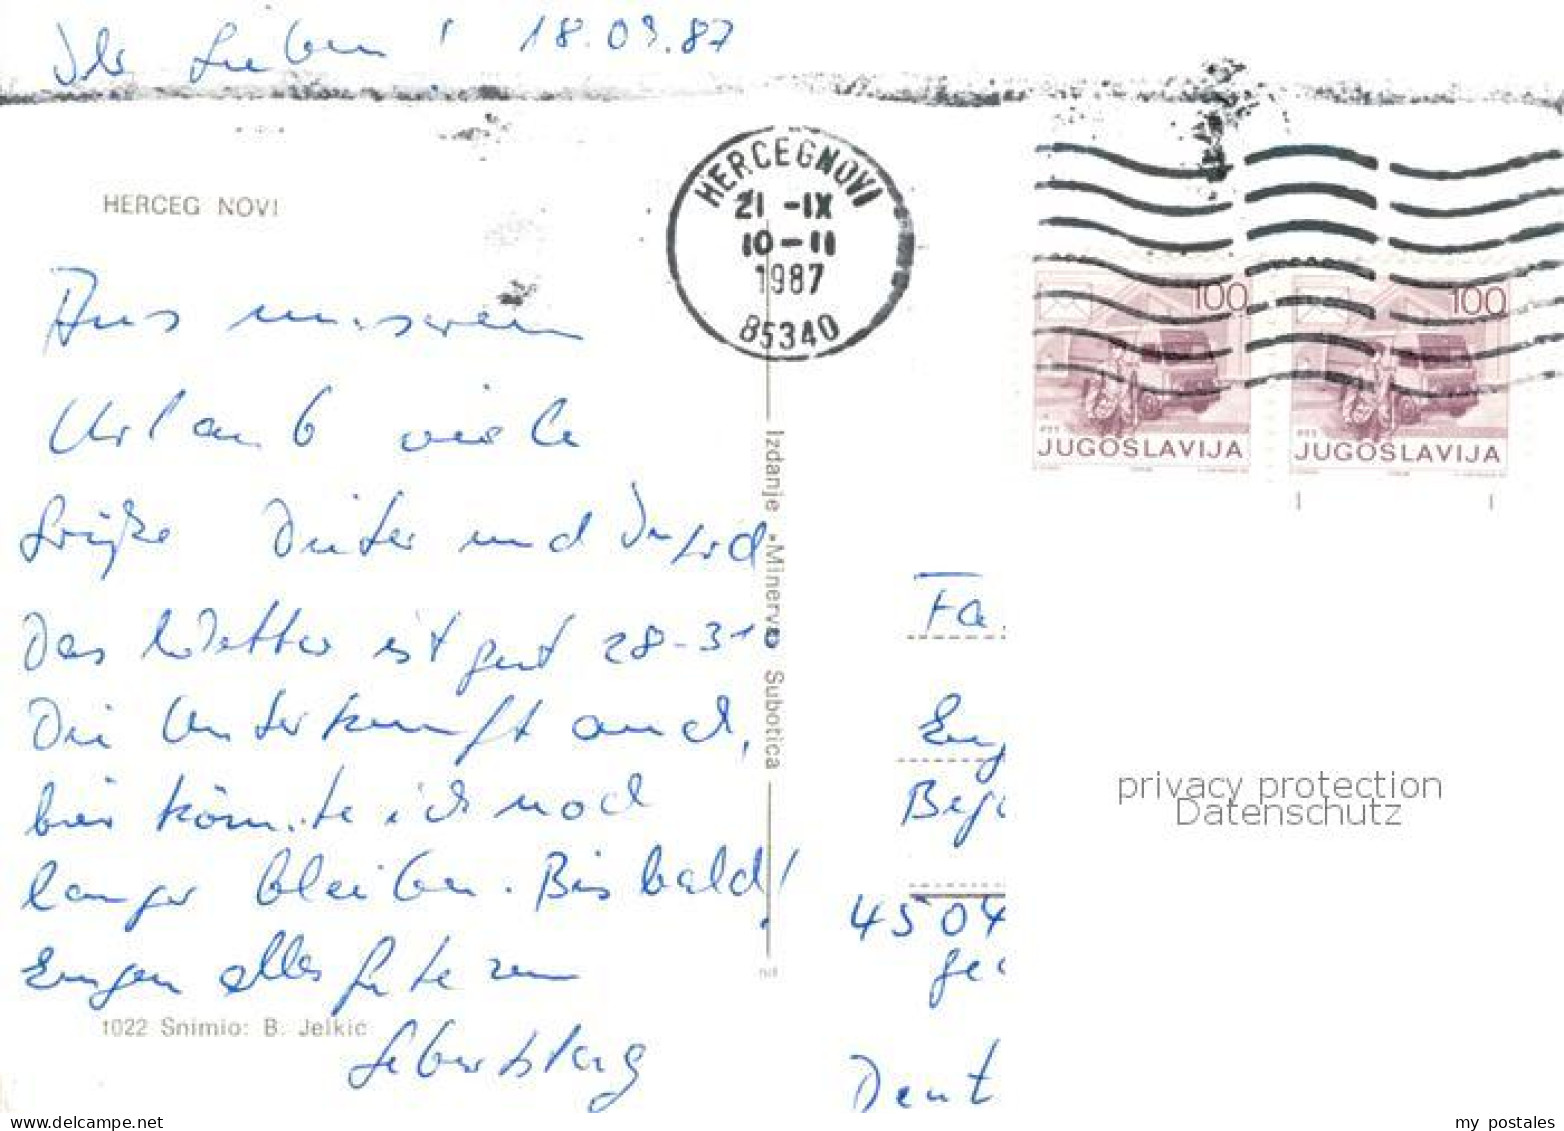 Ihr Lieben! 18.09.87
HERCEG NOVI
HERCEGNOVI
21 -IX
10-11
1987
85340
100
100
PTT
JUGOSLAVIJA
PTT
JUGOSLAVIJA
Aus unserem
Urlaub viele
Grüße Dieter und Ingrid
Das Wetter ist gut 28-31°
Die Unterkunft auch,
hier könnte ich noch
langer bleiben. Bis bald!
Eugen alles gute zum
Geburtstag
Izdanje »Minerva« Subotica
1022 Snimio: B. Jelkić
Fa.
Eug
4504
Deut
privacy protection
Datenschutz
delcampe.net
my_postales